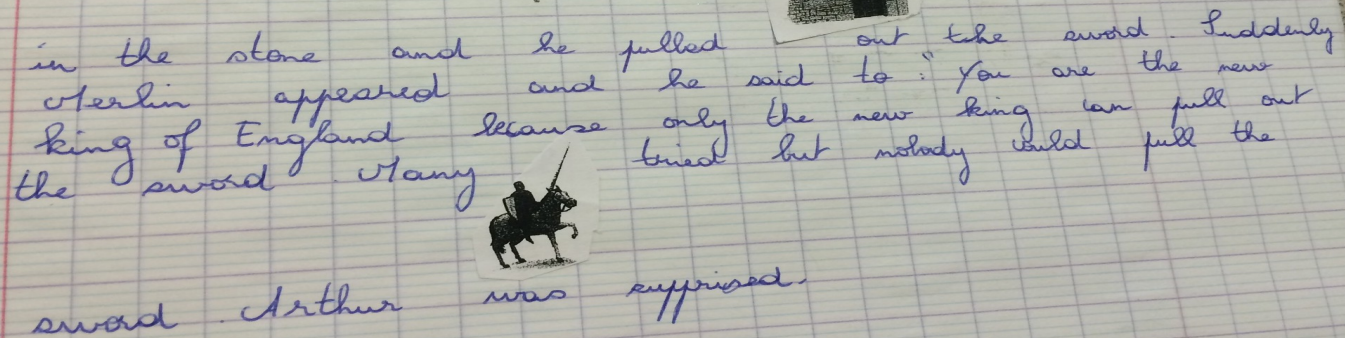 in the stone and he pulled out the sword. Suddenly
Merlin appeared and he said to : "You are the new
king of England because only the new king can pull out
the sword. Many tried but nobody could pull the
sword. Arthur was supprised.